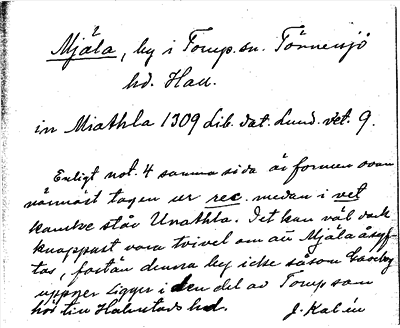 Mjäla, by i Torup sn. Tönnersjö
hd. Hall.
in Miathla 1309 Lib. dat. Lund. vet. 9.
Enligt not. 4 samma sida är formen ovan
närmast tagen ur rec. medan i vet
kanske står Unathla. Det kan väl dock
knappast vara tvivel om att Mjäla åsyf-
tas, fastän denna by icke såsom
uppger ligger i den del av Torup som
hör till Halmstads hd. J. Kalén